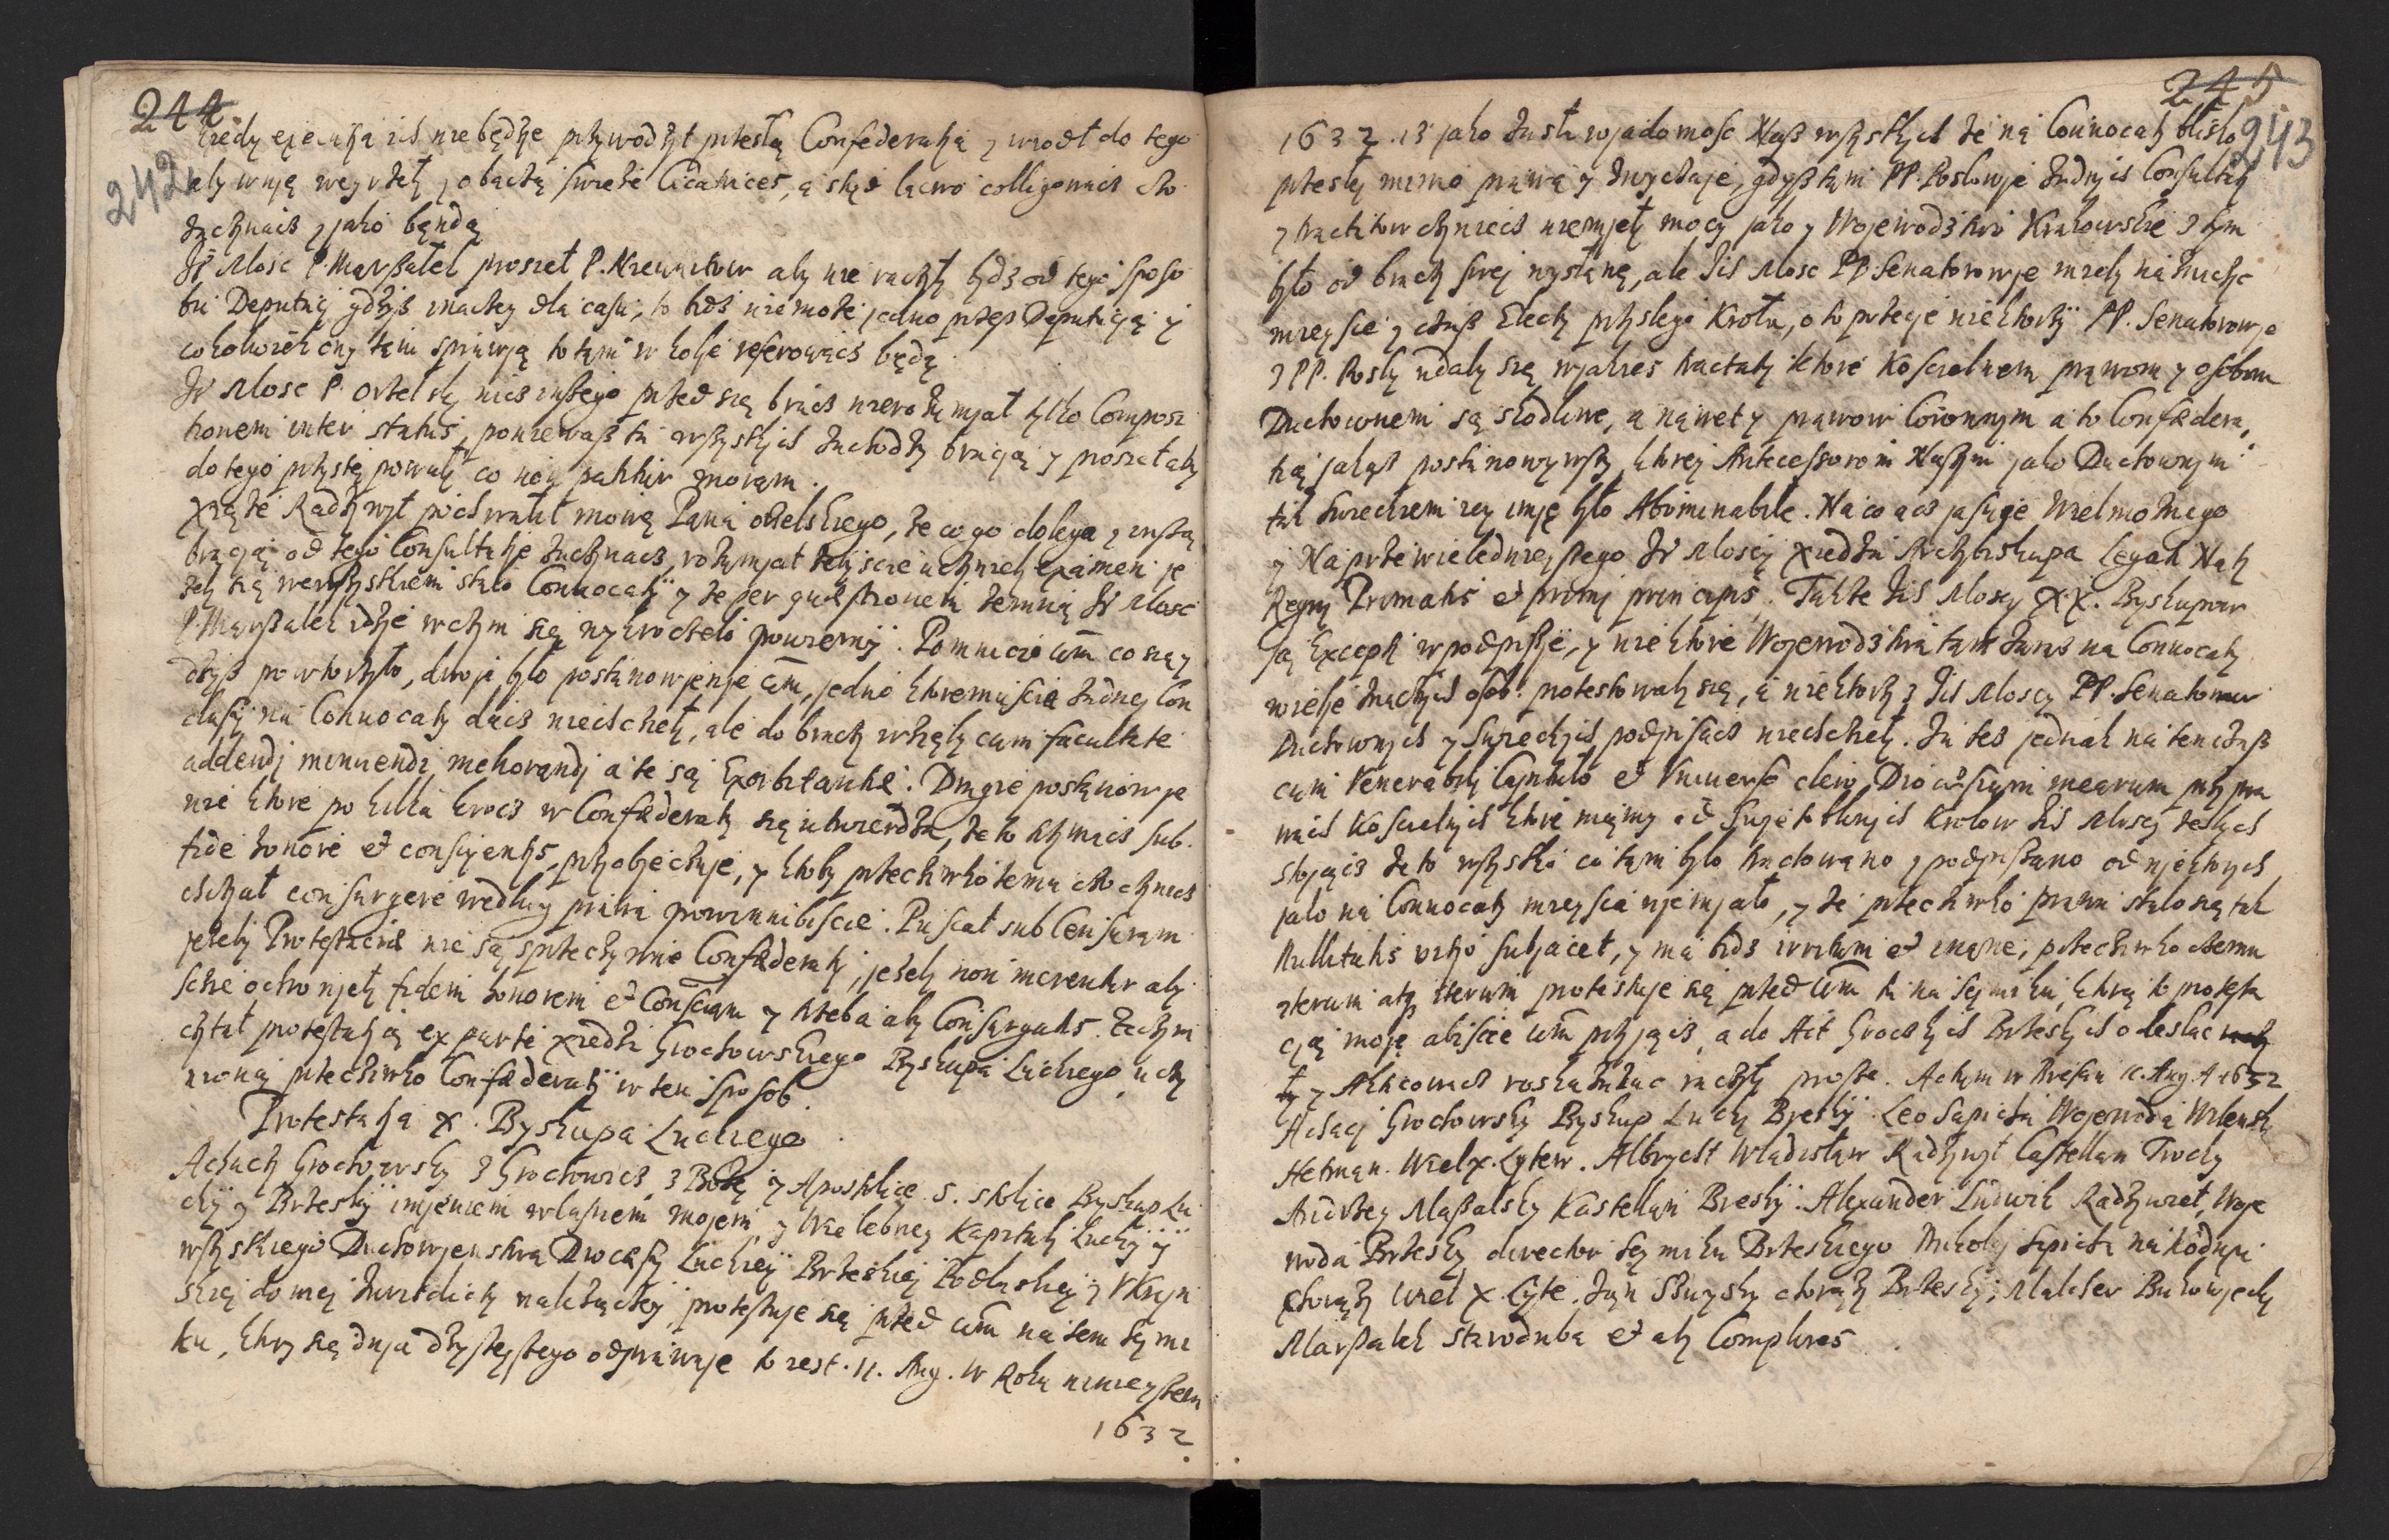 244
242
kiedy exekutią ich niebędzie przywodzyt przestą Confederatią y wiodł do tego
aby w nią weyrzely y obaczą swieże Cicatrices, a stąd łacno colligowacz cho
zaczynacz y jako bęndą
Je Mosc P. Marszałek prosieł P. Krewnikow aby nie raczyly bydz od tego sposo
bu Deputacij gdysz inaczey dla casu, to bydz nie może jedno przez Deputatią y
cokolwiek ony tam sprawią to tam w kolje referowacz będą
Je Mosc P. Orzelsky nicz inszego przed się bracz nierozumjał tylko Composi
tionem inter status, poniewasz tu wszystkich zachodzy bracją y prosieł aby
do tego przystępowaly co non patitur moram.
Xiąże Radzywył pochwalił mową Pana Orzelskiego, że co go dolega y inszą
bracją od tego Consultatie zaczynacz, rozumjał teysze uczynicz examen je
żely się we wszystkiem stało Connocaty y że per quæstionem żemną Je Mosc
P. Marszałek idzie w czym się wykroczeło powiernij. Pomnicie WM co się y
dzysz powtorzyło, dwoje było postanowjenje WM, jedno ktoremuscie żadney Con
clusij na Connocaty dacz niechcieli, ale do braci wzięly cum facultate
addendi minuendi meliorandi a te są Exorbitantie. Drugie postanowje
nie ktore po kilka krocz w Confæderaty się utwierdza, że to trzymacz sub
fide honore et consciencijs, przyobiecuje, y ktoby przeciwko temu cho czynicz
chczał consurgere według prawa powinnibiscie. Puscał sub Censuram
jeżely Protestacie nie są sprzeczynnie Confæderaty, jeżely non merentur aby
scie ochronjely fidem honorem et Conscientiam y trzeba aby Consurgatis. Zaczym
czytał protestatią ex parte xiedza Grochowskiego Byskupa Łuckiego uczy
nioną przeciwko Confæderatij w ten sposob
Protestatia X. Byskupa Łuckiego
Achacy Grochowsky z Grochowicz z Bożey y Apostolskiey S. stolice Byskup Łu
cky y Brzesky imjeniem własnem mojem y Wielebney Kapituly Łuckij y
wszyskiego Duchowjenstwa Diocesij Łuckiej Brzeskiej Podlaskiej y Vkrajn
skiej do mej Jurisdicty należączey, protestuje się przed WM na tem Seymi
ku, ktory się dnja dzysiejszego odprawuje to iest 11. Aug. w Roku ninieyszem
1632
245
243
1632. iż jako zaszła wjadomosc Nasz wszystkich że na Connocaty blisko
przeszłej mimo prawa y zwyczaje, gdysz tam PP. Posłowje żadnych Consultaty
y tractatow czyniecz niemjely mocy jako y Wojewodztwo Krakowskie z tym
było od braci swej wysłane, ale Ich Mosc PP Senatorowje mieły naznaczyc
mieysce y czas Electy przyszłego Krola, a to przecie niektorzy PP. Senatorowje
z PP. Posly udały się w jakies tractaty ktore Koscielnem prawom y osobom
Duchownem są skodliwe, a nawet y prawow Coronnym a to Confædera
tią jakąs postanowywszy, ktorej Antecessorom Naszym jako Duchownym
tak swieckiem iey imję było Abominabile. Na co acz jasnie Wielmożnego
y Naprzewielebniejszego Je Moscij xiedza Archybiskupa Legati Naty
Regni Primatis et primi principis. Także Ich Moscy X.X. Byskupow
są Excepti w podpisie, y niektore Wojewodztwa tamże zaraz na Connocaty
wielje znacznych osob protestowały się, a niektorzy z Ich Moscy PP. Senatorow
Duchownych y Swieckych podpisacz niechcieli. Ja tes jednak na ten czas
cum Venerabily Capitulo et Vniuerso clero Diocæsium mearum przy pra
wach Koscielnych ktore mamy od swjętobliwych Krolow Ich Moscy teszych
stojącz że to wszystko co tam było tractowano y podpisano od njektorych
jako na Connocaty mieysca nje mjało, y że przeciwko prawu stało się tak
Nullitatis vitio subjacet, y ma bydz irritum et inane, przeciwko czemu
iterum atq iterum protestuje się przed WM tu na Sejmiku, ktorą to protesta
cją moje abiscie WM przyjącz, a do Act Groczkich Brzeskich odesłac
ty y Aktikowacz roskazac raczyly prosze. Actum w Brzesciu 11. Aug. A 1632
Achacy Grochowsky Byskup Łucky Bresky. Leo Sapieha Wojewoda Wilensky
Hetman Wiel. x. Lytew. Albrycht Władisław Radzywył Castellan Trocky
Andrzey Masalsky Kasztellan Bresky. Alexander Ludwik Radzywieł, Woje
woda Brzesky director Seymiku Brzeskiego Mikołaj Sapieha na Kodnju
choraży Wiel x Lyte. Jan Skuysky choraży Brzesky, Malcher Bukowjecky
Marszałek Staroduba et aly Complures